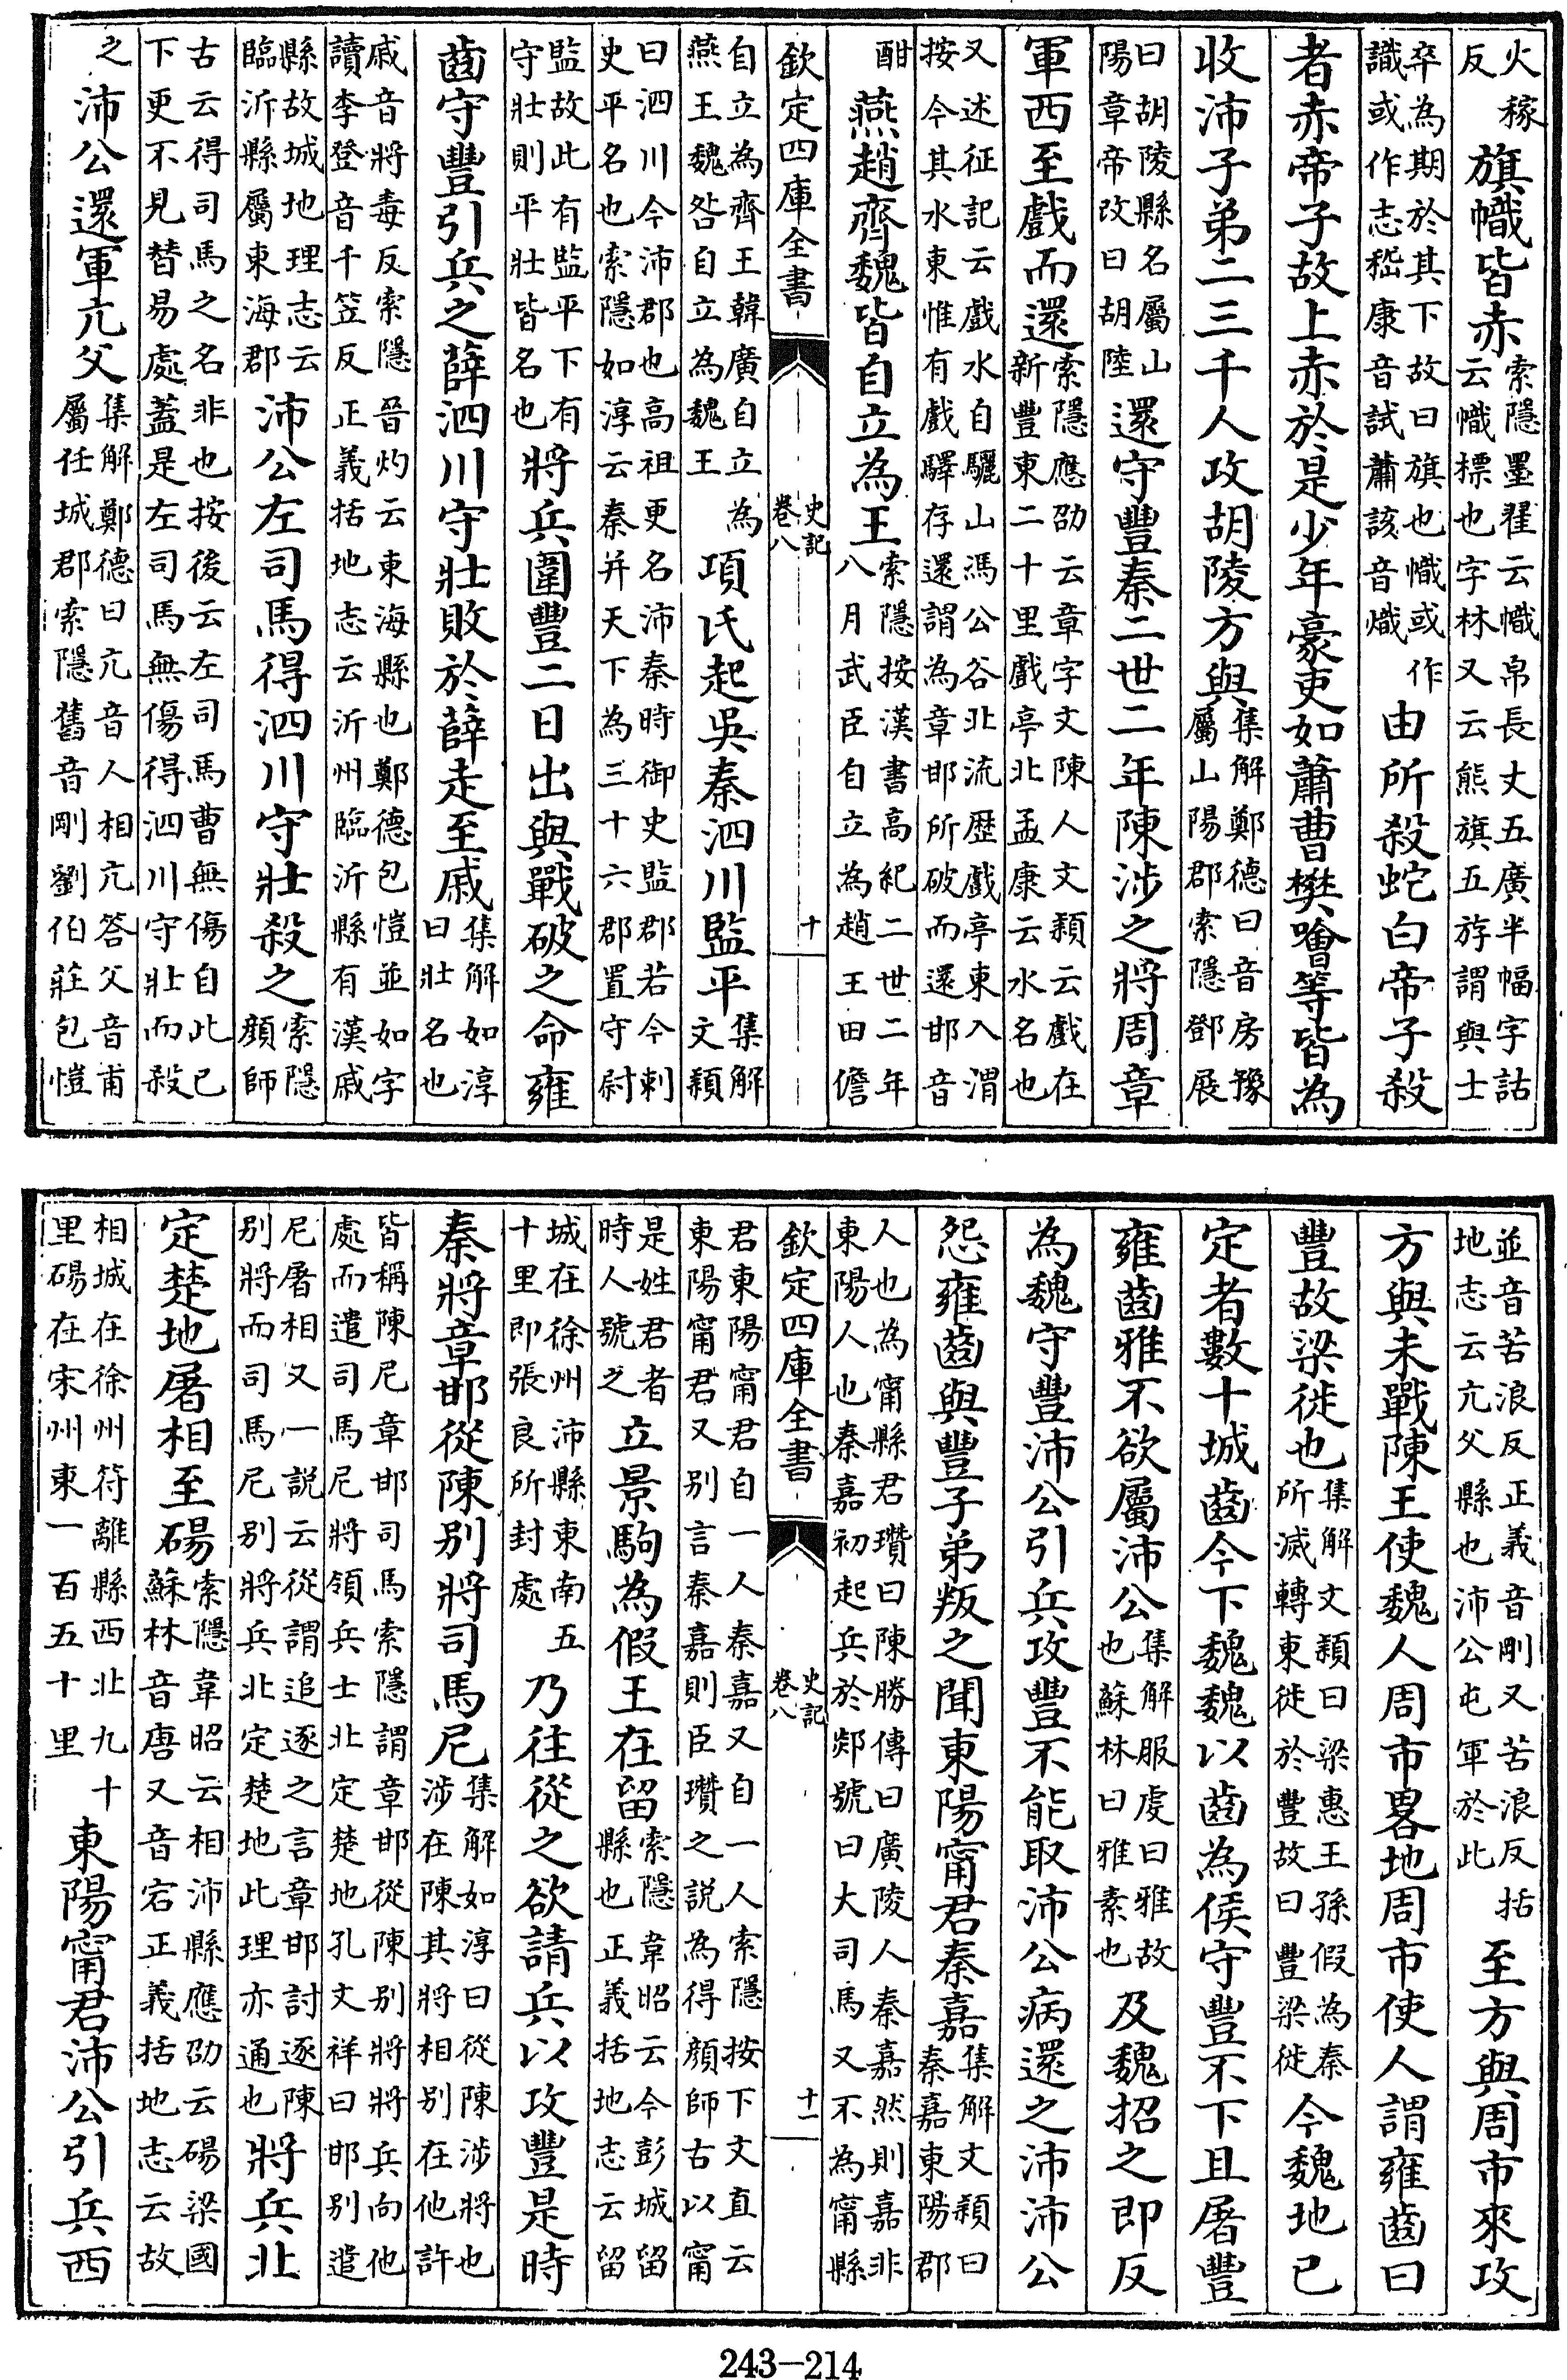 火稼反旗幟皆赤索隱墨翟云幟帛長丈五廣半幅字詁云幟標也字林又云熊旗五斿謂與士
卒為期於其下故曰旗也幟或作識或作志嵇康音試蕭該音熾由所殺蛇白帝子殺
者赤帝子故上赤於是少年豪吏如蕭曹樊噲等皆為
收沛子弟二三千人攻胡陵方與集解鄭德曰音房豫屬山陽郡索隱鄧展
曰胡陵縣名屬山陽章帝改曰胡陸還守豐秦二世二年陳涉之將周章
軍西至戲而還索隱應劭云章字文陳人文穎云戲在新豐東二十里戲亭北孟康云水名也
又述征記云戲水自驪山馮公谷北流歷戲亭東入渭按今其水東惟有戲驛存還謂為章邯所破而還邯音
酣燕趙齊魏皆自立為王索隱按漢書高紀二世二年八月武臣自立為趙王田儋
欽定四庫全書 史記卷八 十
自立為齊王韓廣自立為燕王魏咎自立為魏王項氏起吳秦泗川監平集解文穎
曰泗川今沛郡也高祖更名沛秦時御史監郡若今刺史平名也索隱如淳云秦并天下為三十六郡置守尉
監故此有監平下有守壯則平壯皆名也將兵圍豐二日出與戰破之命雍
齒守豐引兵之薛泗川守壯敗於薛走至戚集解如淳曰壯名也
戚音將毒反索隱晉灼云東海縣也鄭德包愷並如字讀李登音千笠反正義括地志云沂州臨沂縣有漢戚
縣故城地理志云臨沂縣屬東海郡沛公左司馬得泗川守壯殺之索隱顔師
古云得司馬之名非也按後云左司馬曹無傷自此已下更不見替易處蓋是左司馬無傷得泗川守壯而殺
之沛公還軍亢父集解鄭德曰亢音人相亢答父音甫屬任城郡索隱舊音剛劉伯莊包愷
並音苦浪反正義音剛又苦浪反括地志云亢父縣也沛公屯軍於此至方與周市來攻
方與未戰陳王使魏人周市畧地周市使人謂雍齒曰
豐故梁徙也集解文穎曰梁惠王孫假為秦所滅轉東徙於豐故曰豐梁徙今魏地已
定者數十城齒今下魏魏以齒為侯守豐不下且屠豐
雍齒雅不欲屬沛公集解服虔曰雅故也蘇林曰雅素也及魏招之即反
為魏守豐沛公引兵攻豐不能取沛公病還之沛沛公
怨雍齒與豐子弟叛之聞東陽甯君秦嘉集解文穎曰秦嘉東陽郡
人也為甯縣君瓚曰陳勝傳曰廣陵人秦嘉然則嘉非東陽人也秦嘉初起兵於郯號曰大司馬又不為甯縣
欽定四庫全書 史記卷八 十一
君東陽甯君自一人秦嘉又自一人索隱按下文直云東陽甯君又别言秦嘉則臣瓚之説為得顔師古以甯
是姓君者時人號之立景駒為假王在留索隱韋昭云今彭城留縣也正義括地志云留
城在徐州沛縣東南五十里即張良所封處乃往從之欲請兵以攻豐是時
秦將章邯從陳别將司馬尼集解如淳曰從陳涉將也涉在陳其將相别在他許
皆稱陳尼章邯司馬索隱謂章邯從陳别將將兵向他處而遣司馬尼將領兵士北定楚地孔文祥曰邯别遣
尼屠相又一説云從謂追逐之言章邯討逐陳别將而司馬尼别將兵北定楚地此理亦通也將兵北
定楚地屠相至碭索隱韋昭云相沛縣應劭云碭梁國蘇林音唐又音宕正義括地志云故
相城在徐州符離縣西北九十里碭在宋州東一百五十里東陽甯君沛公引兵西
243-214